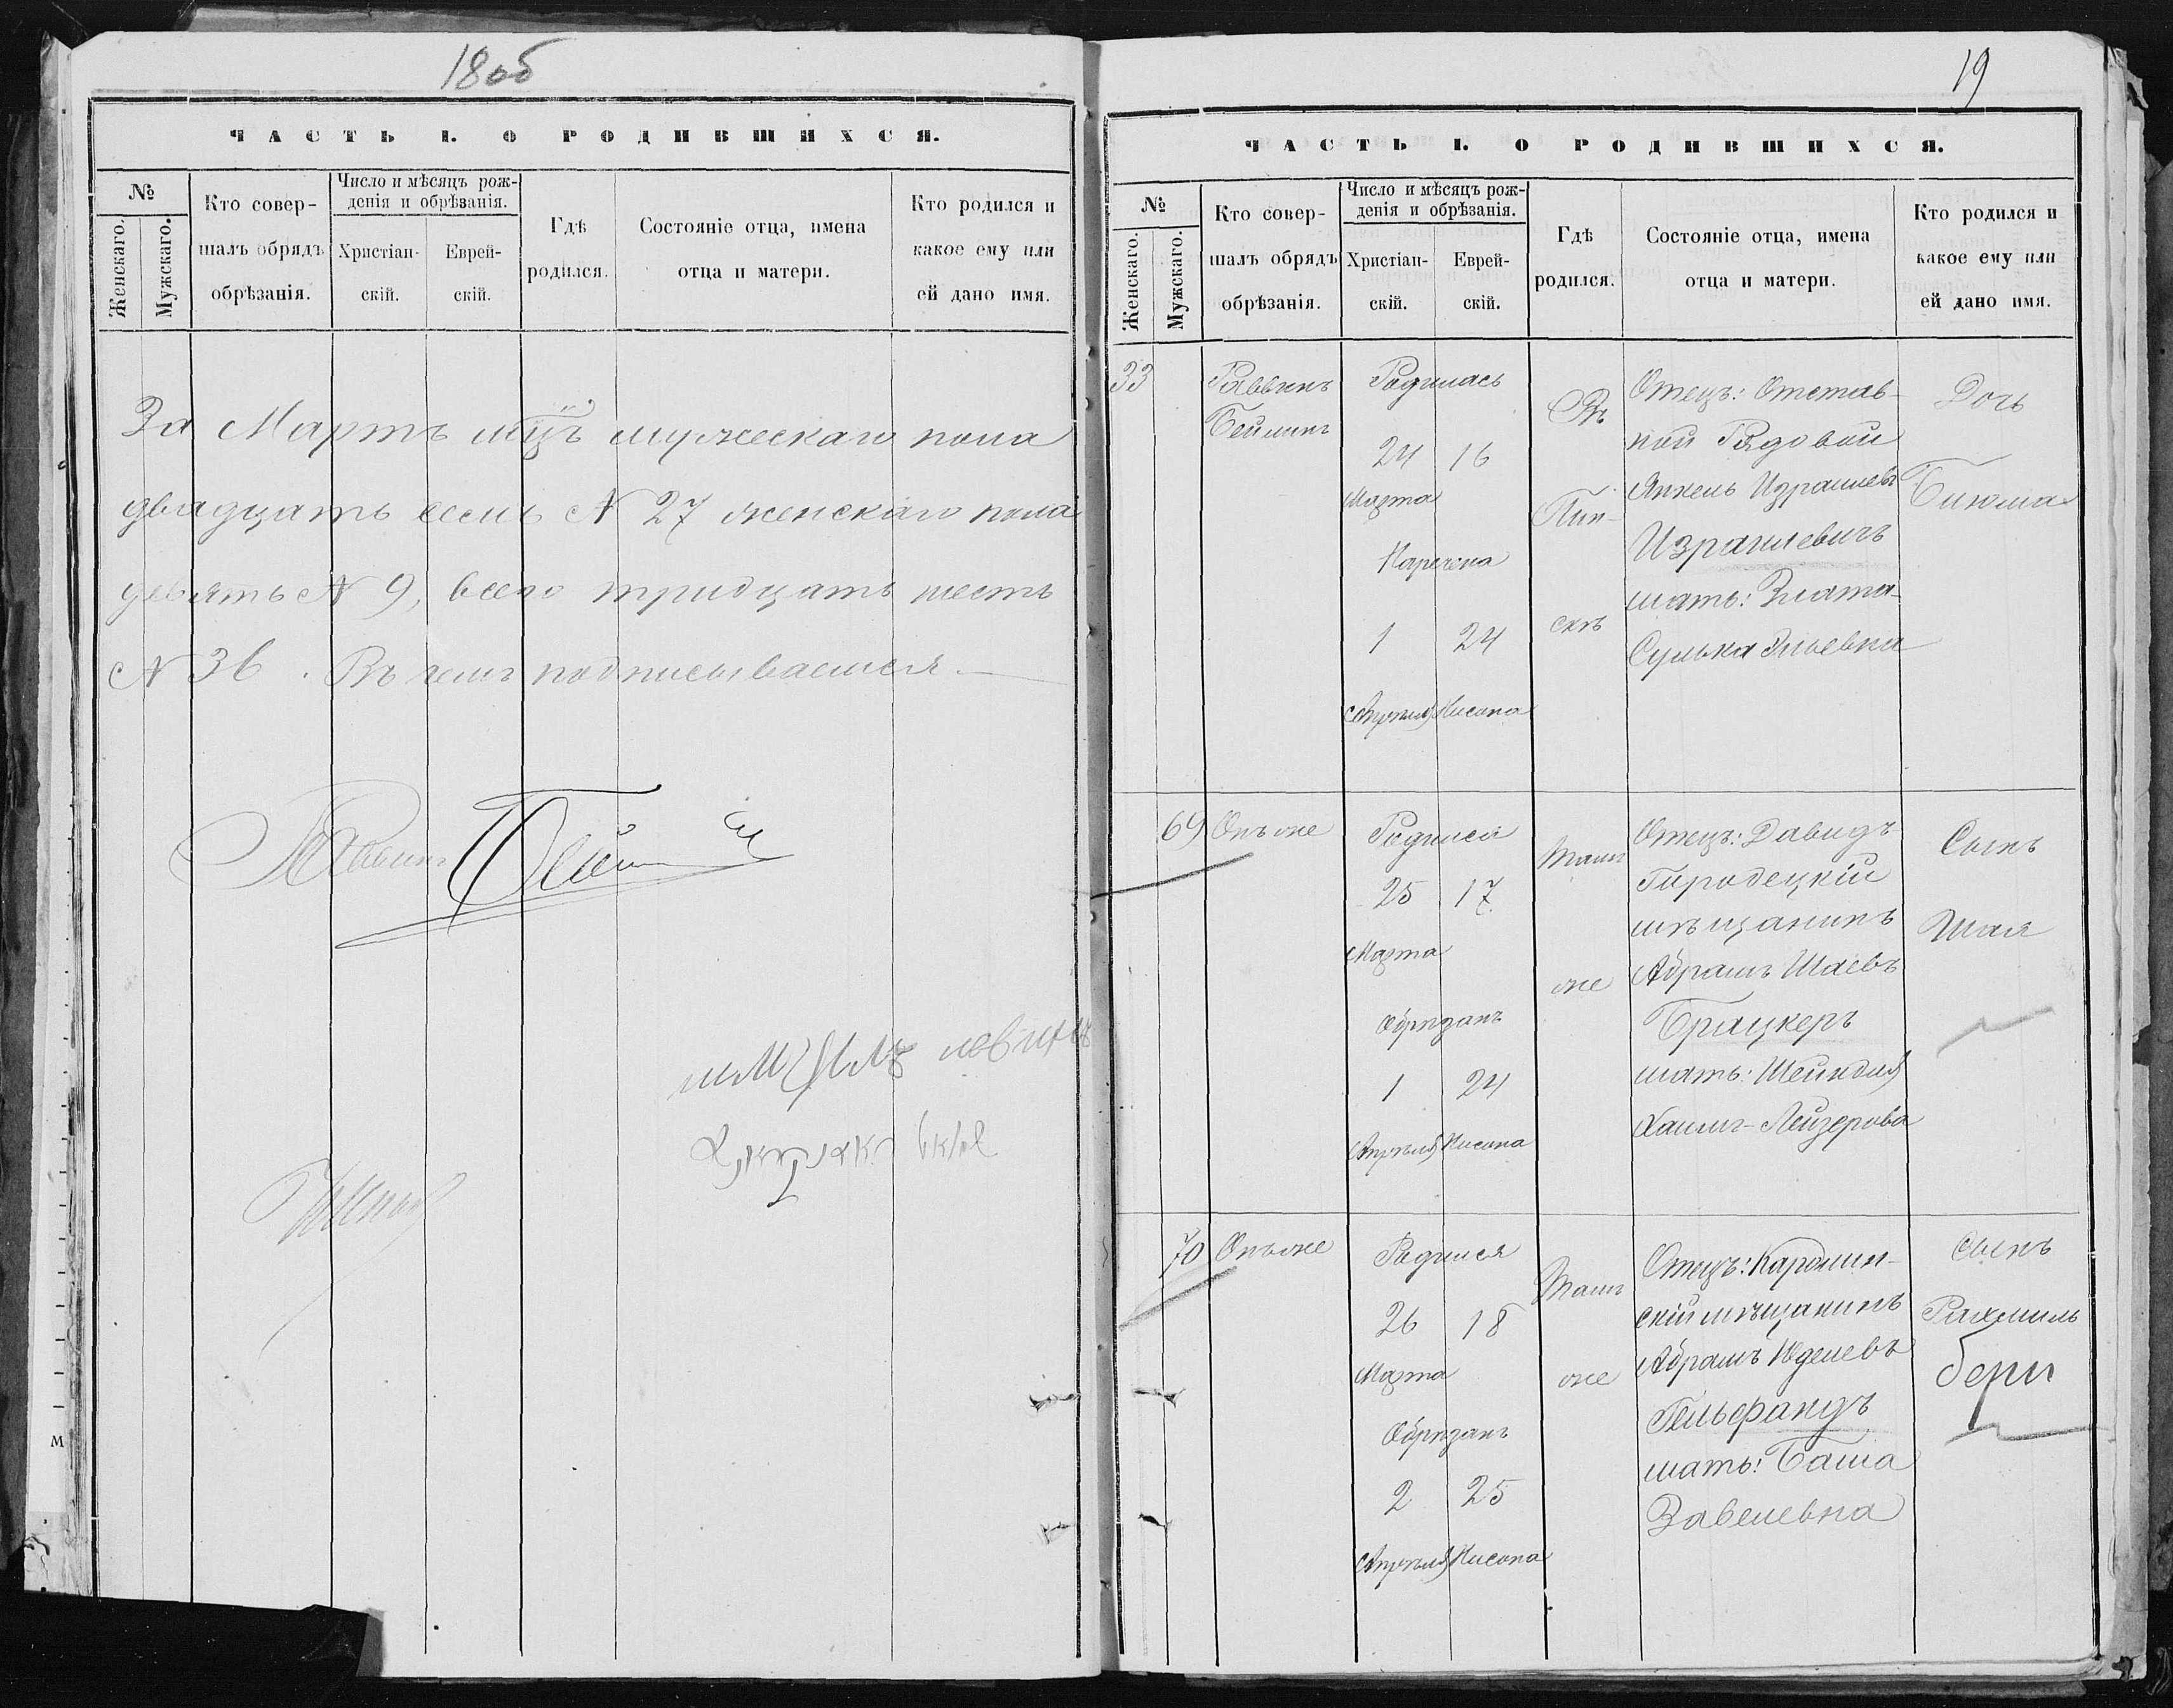 18об
ЧАСТЬ I. О РОДИВШИХСЯ.
№
Женскаго.
Мужскаго.
Кто совер-
шалъ обрядъ
обрѣзанія.
Число и мѣсяцъ рож-
денія и обрѣзанія.
Христіан-
скій.
Еврей-
скій.
Гдѣ
родился.
Состояніе отца, имена
отца и матери.
Кто родился и
какое ему или
ей дано имя.
За Мартъ мцъ мужескаго пола
двадцать семь N 27 женскаго пола
девять N 9, всего тридцать шесть
N 36. Въ чемъ подписываемся
Раввинъ Бейлин
левинъ
М
19
ЧАСТЬ I. О РОДИВШИХСЯ.
№
Женскаго.
Мужскаго.
Кто совер-
шалъ обрядъ
обрѣзанія.
Число и мѣсяцъ рож-
денія и обрѣзанія.
Христіан-
скій.
Еврей-
скій.
Гдѣ
родился.
Состояніе отца, имена
отца и матери.
Кто родился и
какое ему или
ей дано имя.
33
Раввинъ
Бейлинъ
Родилась
24 16
Марта
Наречена
1 24
Апрѣля Нисона
Въ
Пин-
скѣ
Отецъ: Отстав-
ной Рядовой
Янкель Израилевъ
Израилевичъ
мать: Злата-
Сулька Эльевна
Дочь
Блюма
69
Онъ же
Родился
25 17
Марта
Обрѣзанъ
1 24
Апрѣля Нисона
Тамъ
же
Отецъ: Давидъ
Городецкій
мѣщанинъ
Абрамъ Шаевъ
Брацкеръ
мать: Шейндля
Хаимъ-Лейзерова
Сынъ
Шая
70
Онъ же
Родился
26 18
Марта
Обрѣзанъ
2 25
Апрѣля Нисона
Тамъ
же
Отецъ: Каролин-
скій мѣщанинъ
Абрамъ Юделевъ
Гельфандъ
мать: Баша
Завелевна
Сынъ
Рахмиль
бери